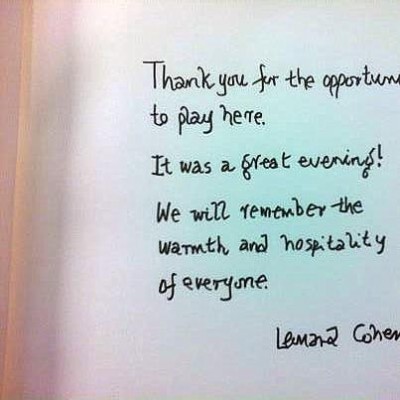 Thank you for the opportun
to play here.
It was a great evening!
We will remember the
warmth and hospitality
of everyone.
Leonard Cohen